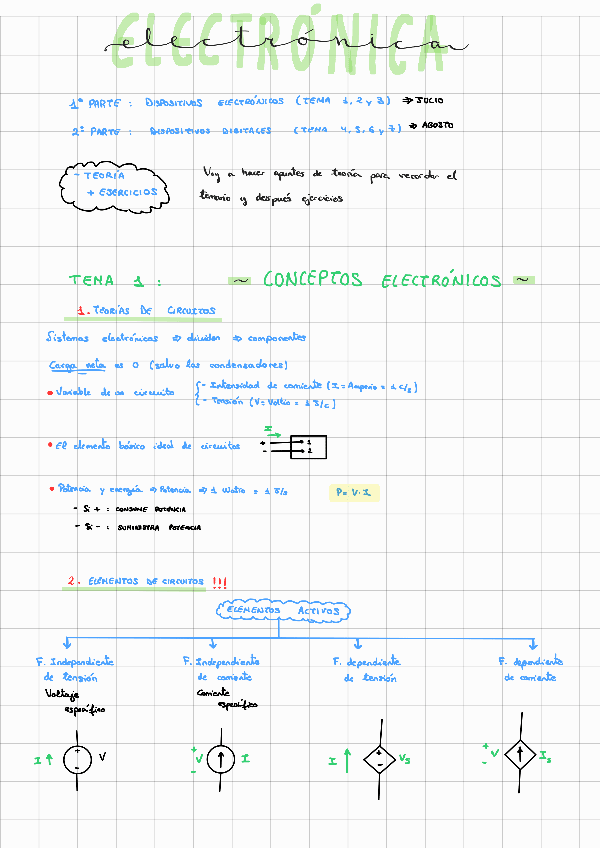 ELECTRÓNICA
electrónica
1ª PARTE : DISPOSITIVOS ELECTRÓNICOS (TEMA 1, 2 y 3) ⇒ JULIO
2ª PARTE : DISPOSITIVOS DIGITALES (TEMA 4, 5, 6 y 7) ⇒ AGOSTO
- TEORÍA
+ EJERCICIOS
Voy a hacer apuntes de teoría para recordar el
temario y después ejercicios
TEMA 1 : ~ CONCEPTOS ELECTRÓNICOS ~
1. TEORÍAS DE CIRCUITOS
Sistemas electrónicos ⇒ dividen ⇒ componentes
Carga neta es 0 (salvo los condensadores)
• Variable de un circuito { - Intensidad de corriente (I = Amperio = 1 C/s)
- Tensión (V = Voltio = 1 J/C)
• El elemento básico ideal de circuitos
I
+ 1
- 2
• Potencia y energía ⇒ Potencia ⇒ 1 Watio = 1 J/s P = V · I
- Si + : CONSUME POTENCIA
- Si - : SUMINISTRA POTENCIA
2. ELEMENTOS DE CIRCUITOS !!!
ELEMENTOS ACTIVOS
F. Independiente F. Independiente F. dependiente F. dependiente
de tensión de corriente de tensión de corriente
Voltaje Corriente
específico específico
I ↑ + - V
+ V - ↑ I
I ↑ + - Vs
+ V - ↑ Is